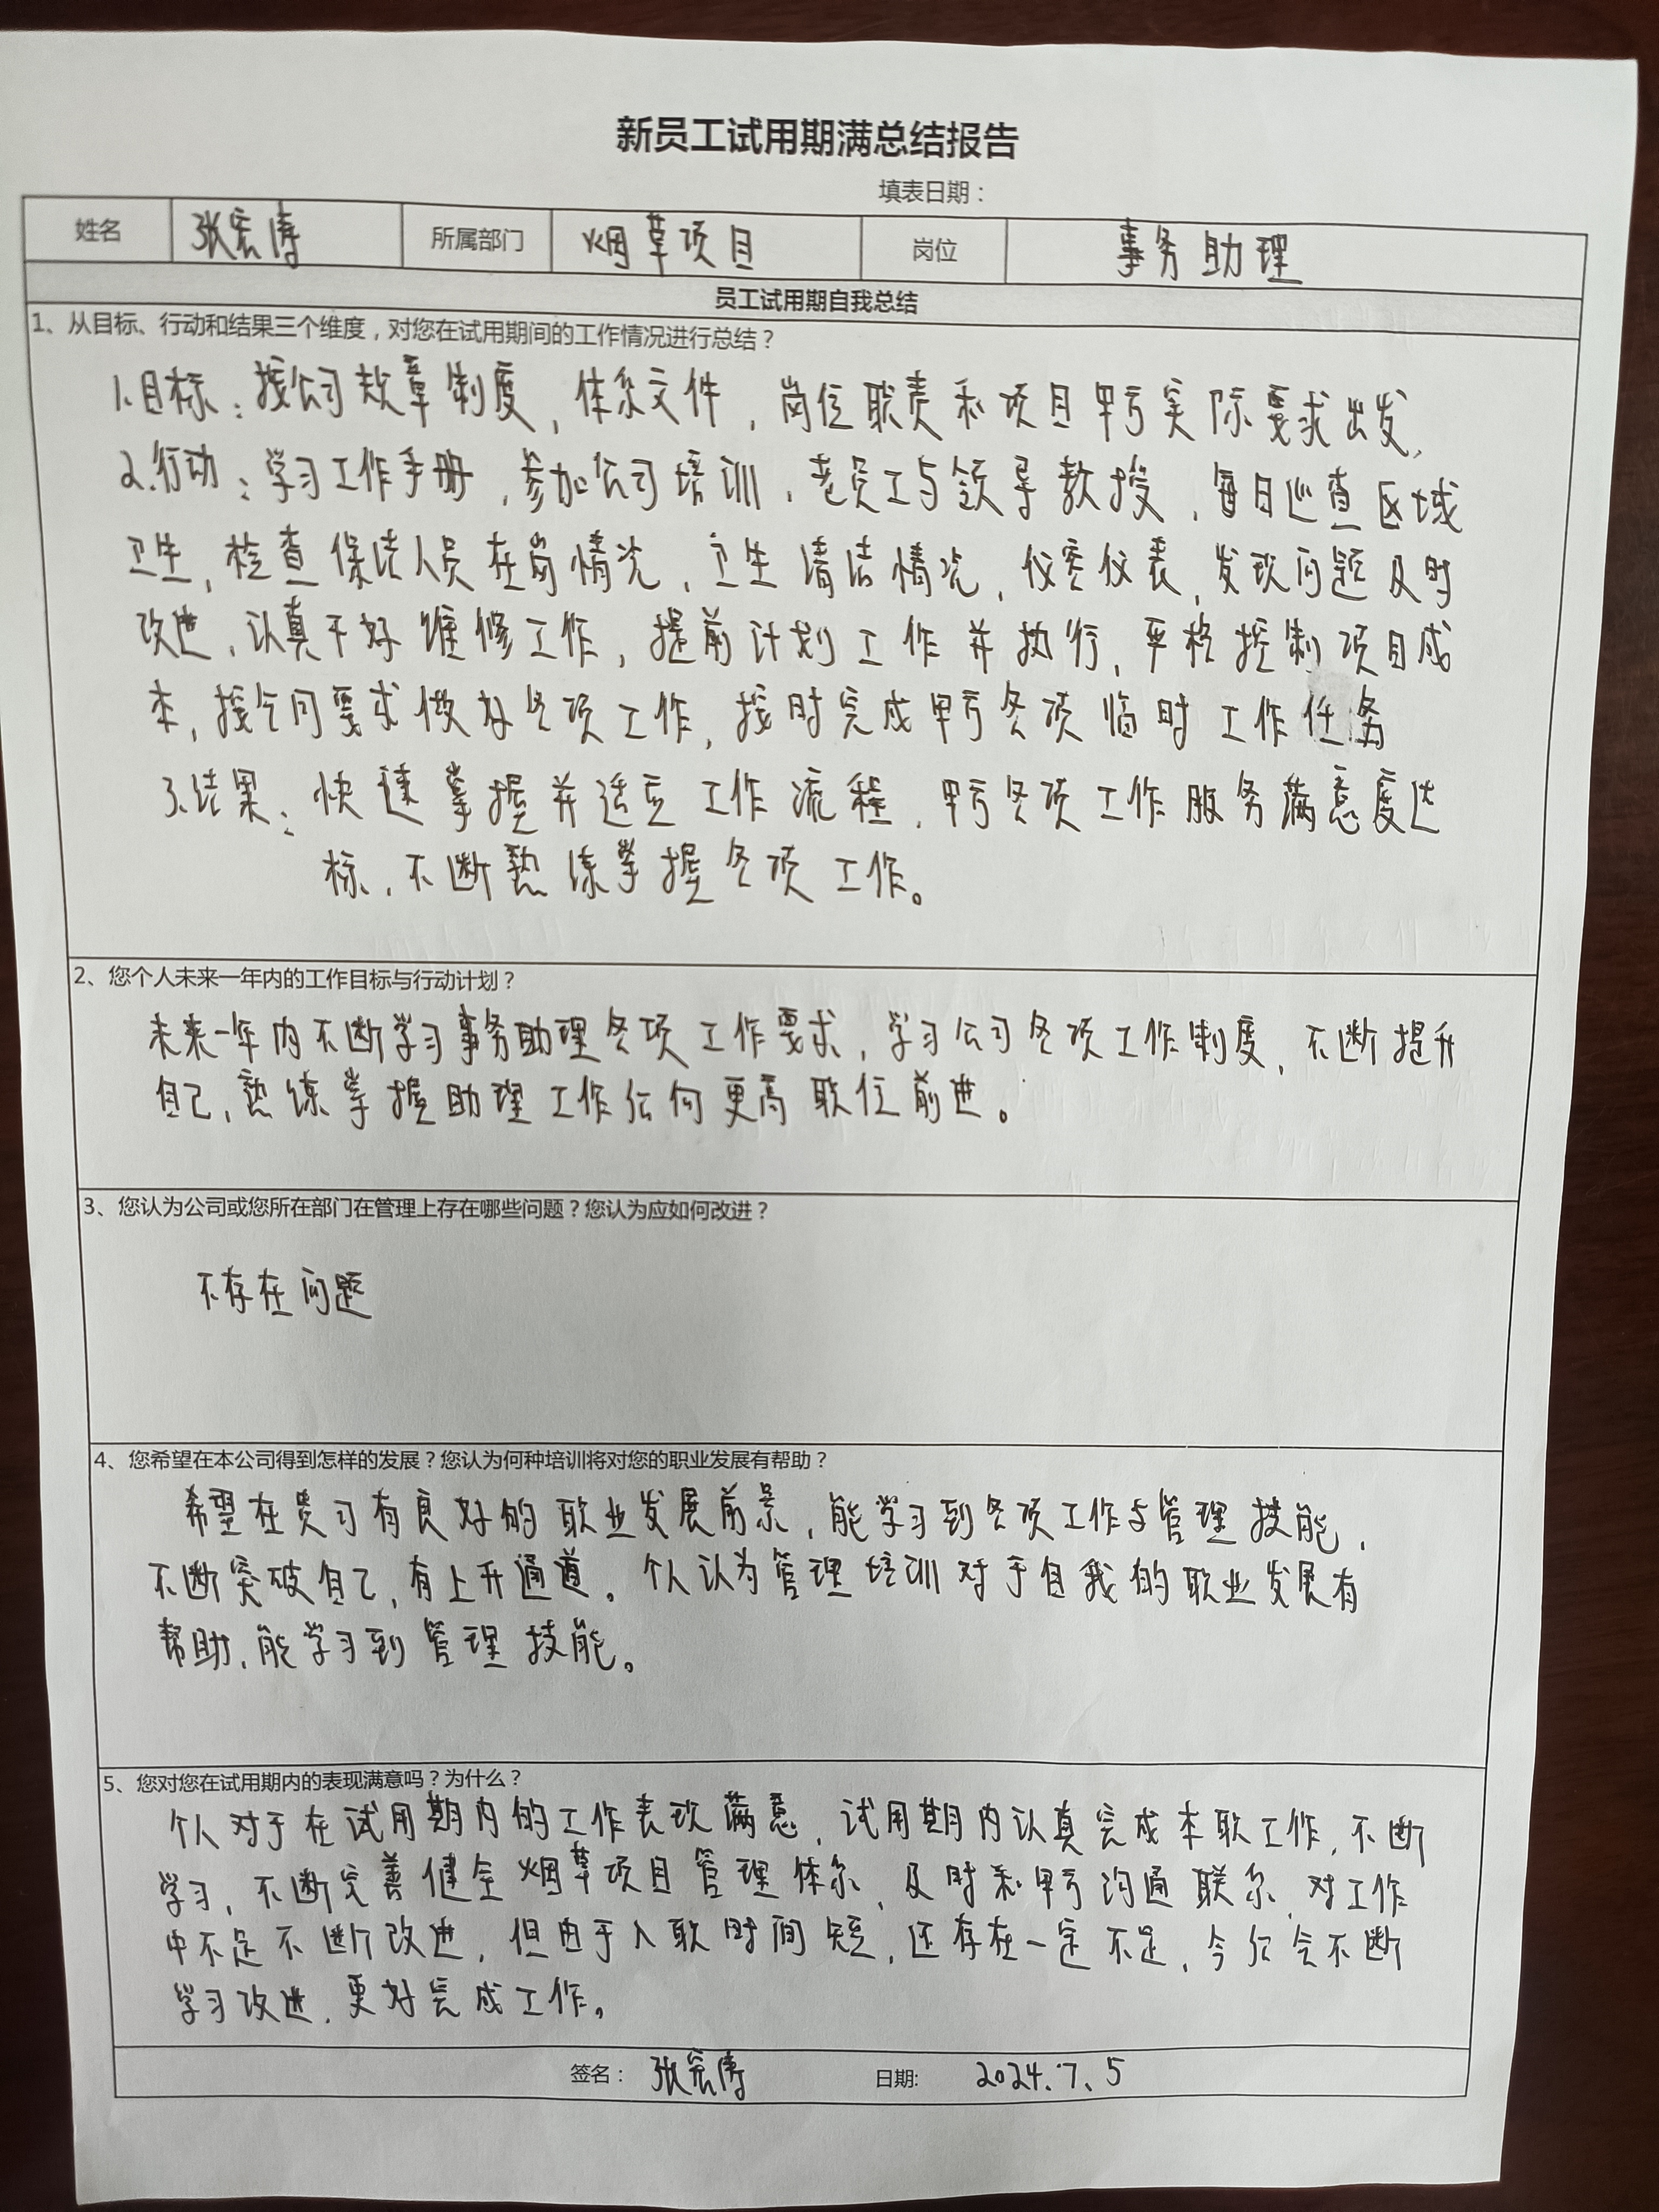 新员工试用期满总结报告
填表日期：
姓名 张宏涛 所属部门 烟草项目 岗位 事务助理
员工试用期自我总结
1、从目标、行动和结果三个维度，对您在试用期间的工作情况进行总结？
1.目标：按公司规章制度，体系文件，岗位职责和项目甲方实际要求出发，
2.行动：学习工作手册，参加公司培训，老员工与领导教授，每日巡查区域
卫生，检查保洁人员在岗情况，卫生清洁情况，仪容仪表，发现问题及时
改进，认真干好维修工作，提前计划工作并执行，严格控制项目成
本，按合同要求做好各项工作，按时完成甲方各项临时工作任务
3.结果：快速掌握并适应工作流程，甲方各项工作服务满意度达
标，不断熟练掌握各项工作。
2、您个人未来一年内的工作目标与行动计划？
未来一年内不断学习事务助理各项工作要求，学习公司各项工作制度，不断提升
自己，熟练掌握助理工作后向更高职位前进。
3、您认为公司或您所在部门在管理上存在哪些问题？您认为应如何改进？
不存在问题
4、您希望在本公司得到怎样的发展？您认为何种培训将对您的职业发展有帮助？
希望在贵司有良好的职业发展前景，能学习到各项工作与管理技能，
不断突破自己，有上升通道。个人认为管理培训对于自我的职业发展有
帮助，能学习到管理技能。
5、您对您在试用期内的表现满意吗？为什么？
个人对于在试用期内的工作表现满意，试用期内认真完成本职工作，不断
学习，不断完善健全烟草项目管理体系，及时和甲方沟通联系，对工作
中不足不断改进，但由于入职时间短，还存在一定不足，今后会不断
学习改进，更好完成工作。
签名： 张宏涛 日期: 2024.7.5